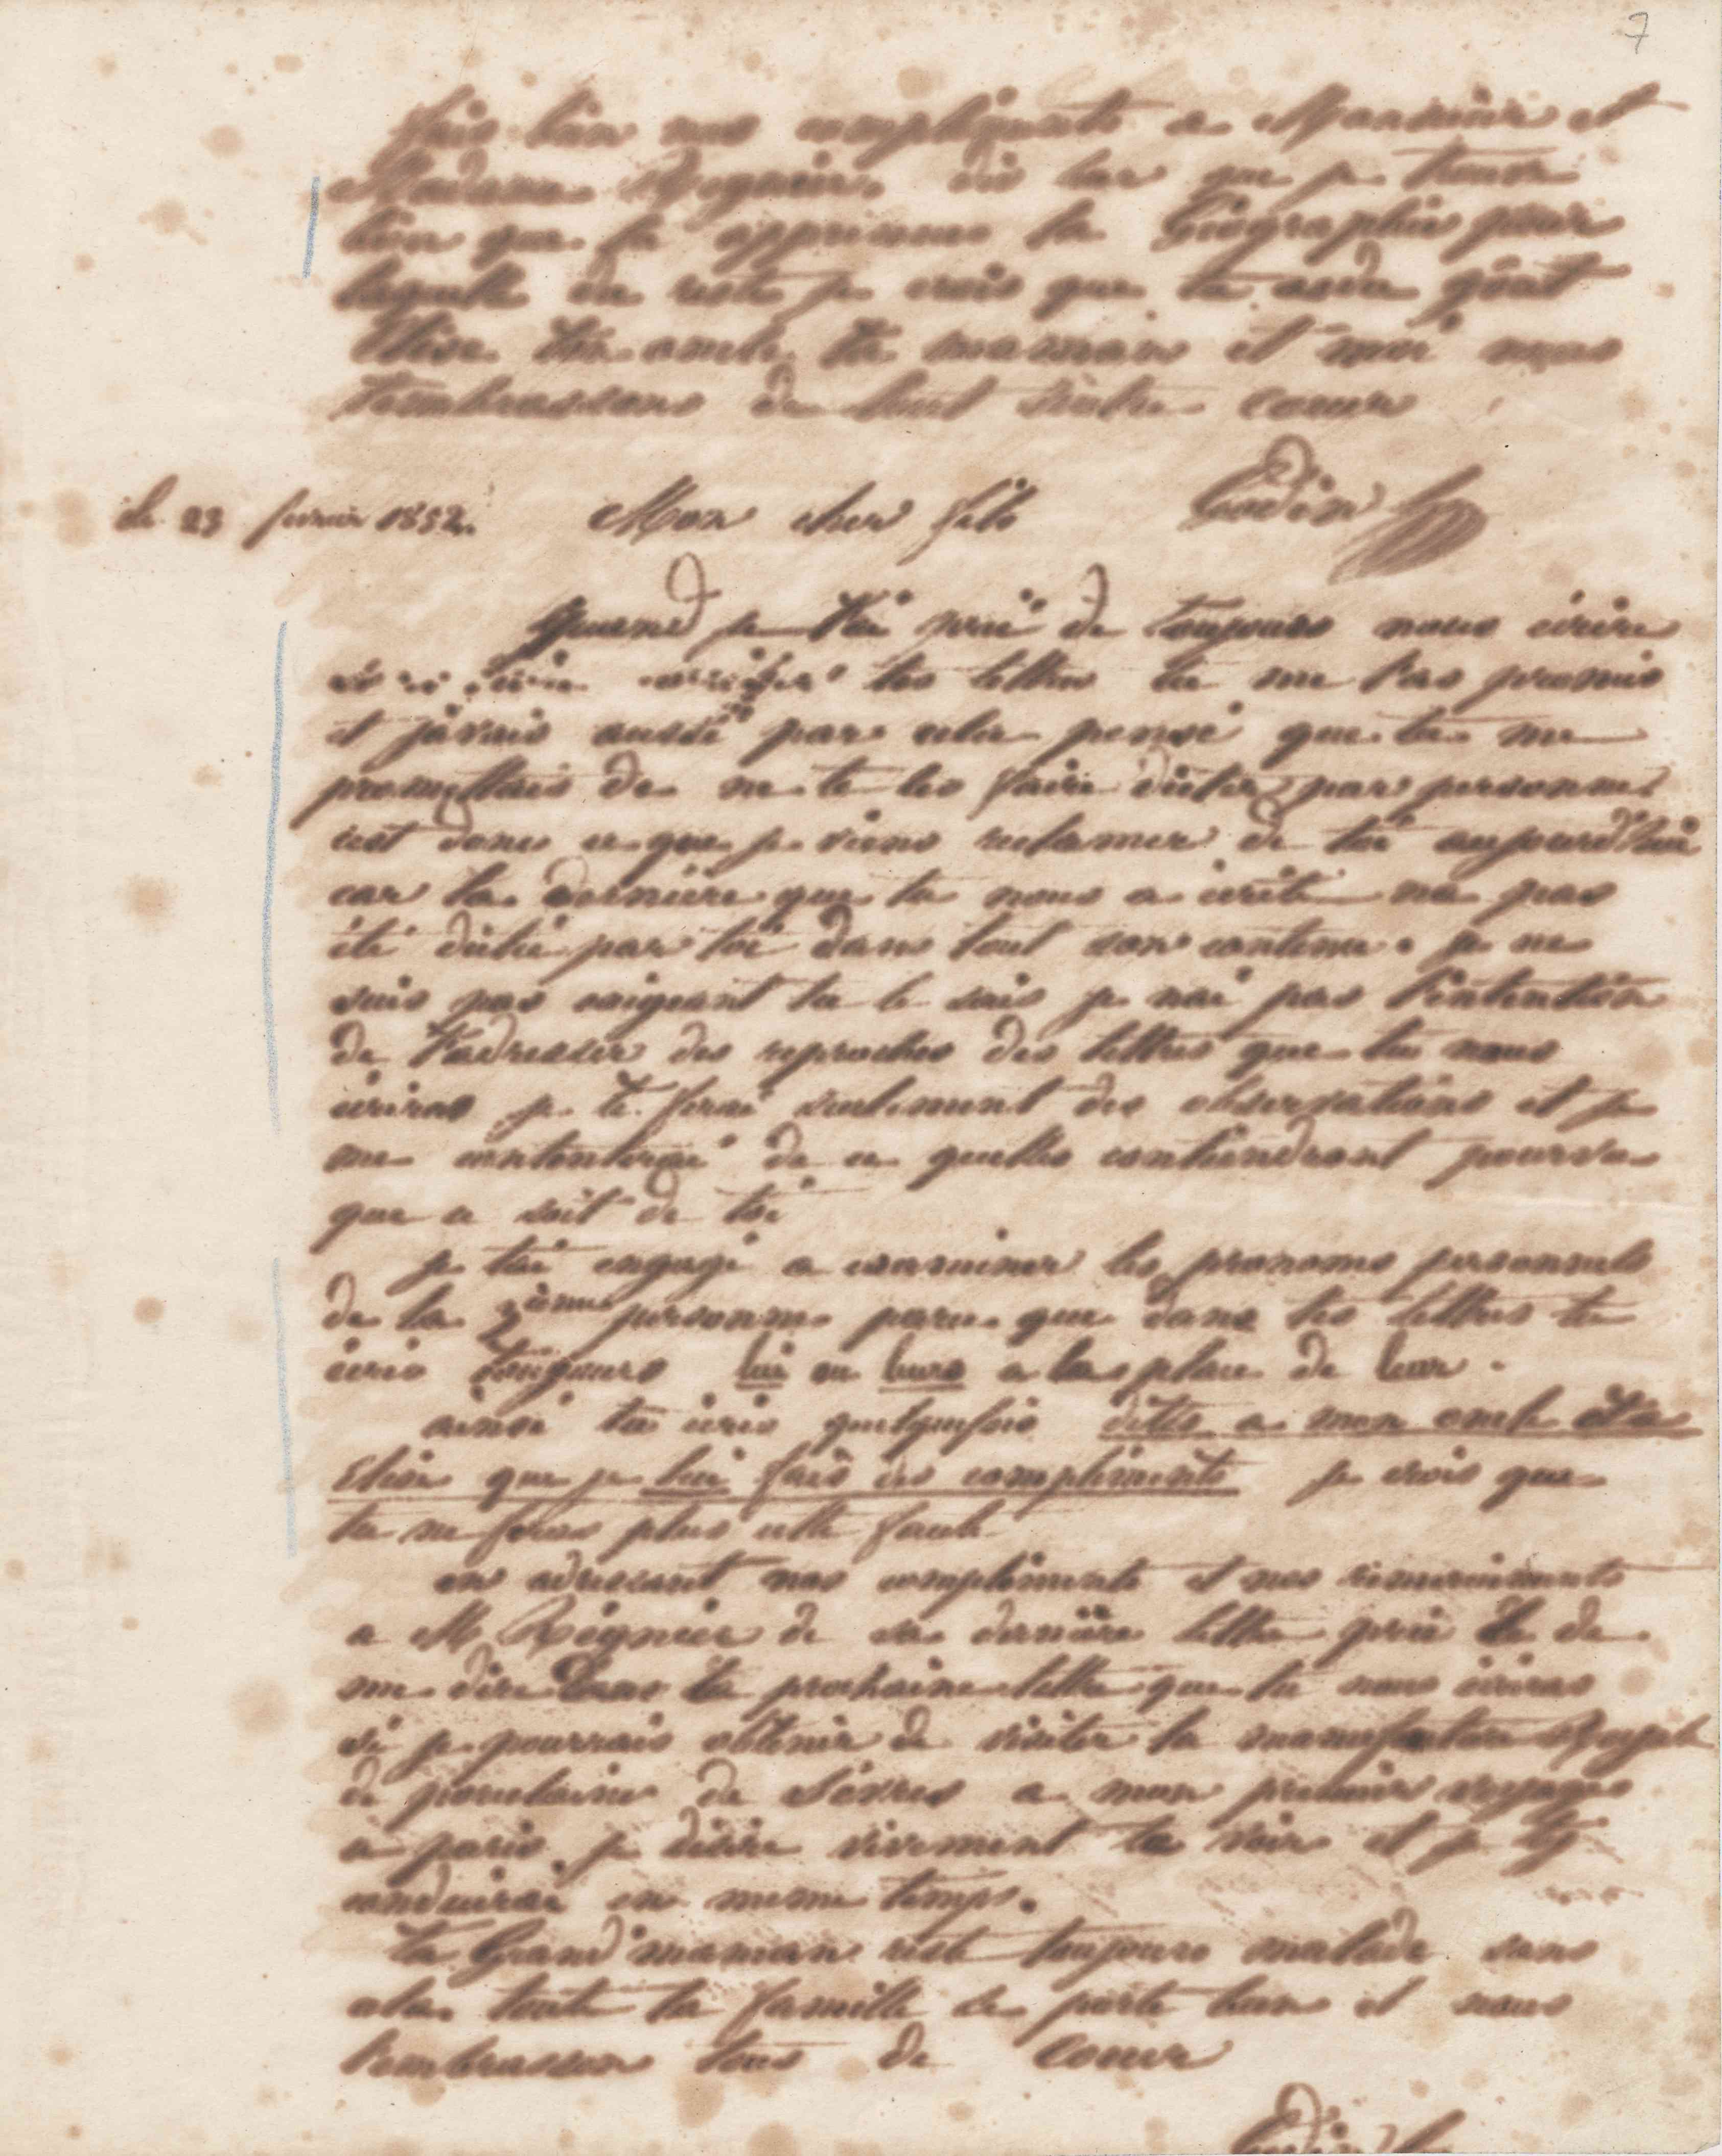 7
fais bien nos compliments a Monsieur et
Madame Regnier. dis leur que je trouve
bien que tu apprennes la Géographie pour
laquelle du reste je crois que tu as du goût
Elise ton oncle ta maman et moi nous
t'embrassons de tout notre coeur
Godin
le 23 fevrier 1852. Mon cher fils
Quand je t'ai prié de toujours nous écrire
tes lettres tu me l'as promis
et j'avais aussi par cela pensé que tu me
promettais de ne te les faire dicter par personne
cest donc ce que je viens reclamer de toi aujourd'hui
car la dernière que tu nous a écrite na pas
été dictée par toi dans tout son contenu. je ne
suis pas exigeant tu le sais je nai pas l'intention
de t'adresser des reproches des lettres que tu nous
ecriras je te ferai seulement des observations et je
me contenterai de ce quelles contiendront pourvu
que ce soit de toi
je t'ai engagé a examiner les pronoms personnels
de la 3ième personne parce que dans tes lettres tu
écris toujours lui ou leurs a la place de leur.
ainsi tu écris quelquefois dites a mon oncle et a
Elise que je lui fais des compliments je crois que
tu ne feras plus cette faute
en adressant nos compliments et nos remerciments
a Mr Régnier de sa dernière lettre prie le de
me dire dans la prochaine lettre que tu nous écriras
si je pourrais obtenir de visiter la manufacture Royale
de porcelaine de Sèvres a mon premier voyage
a paris je désire vivement la voir et je t'y
conduirai en meme temps.
ta Grand'maman reste toujours malade sans
cela toute la famille se porte bien et nous
t'embrassons tous de coeur
Godin